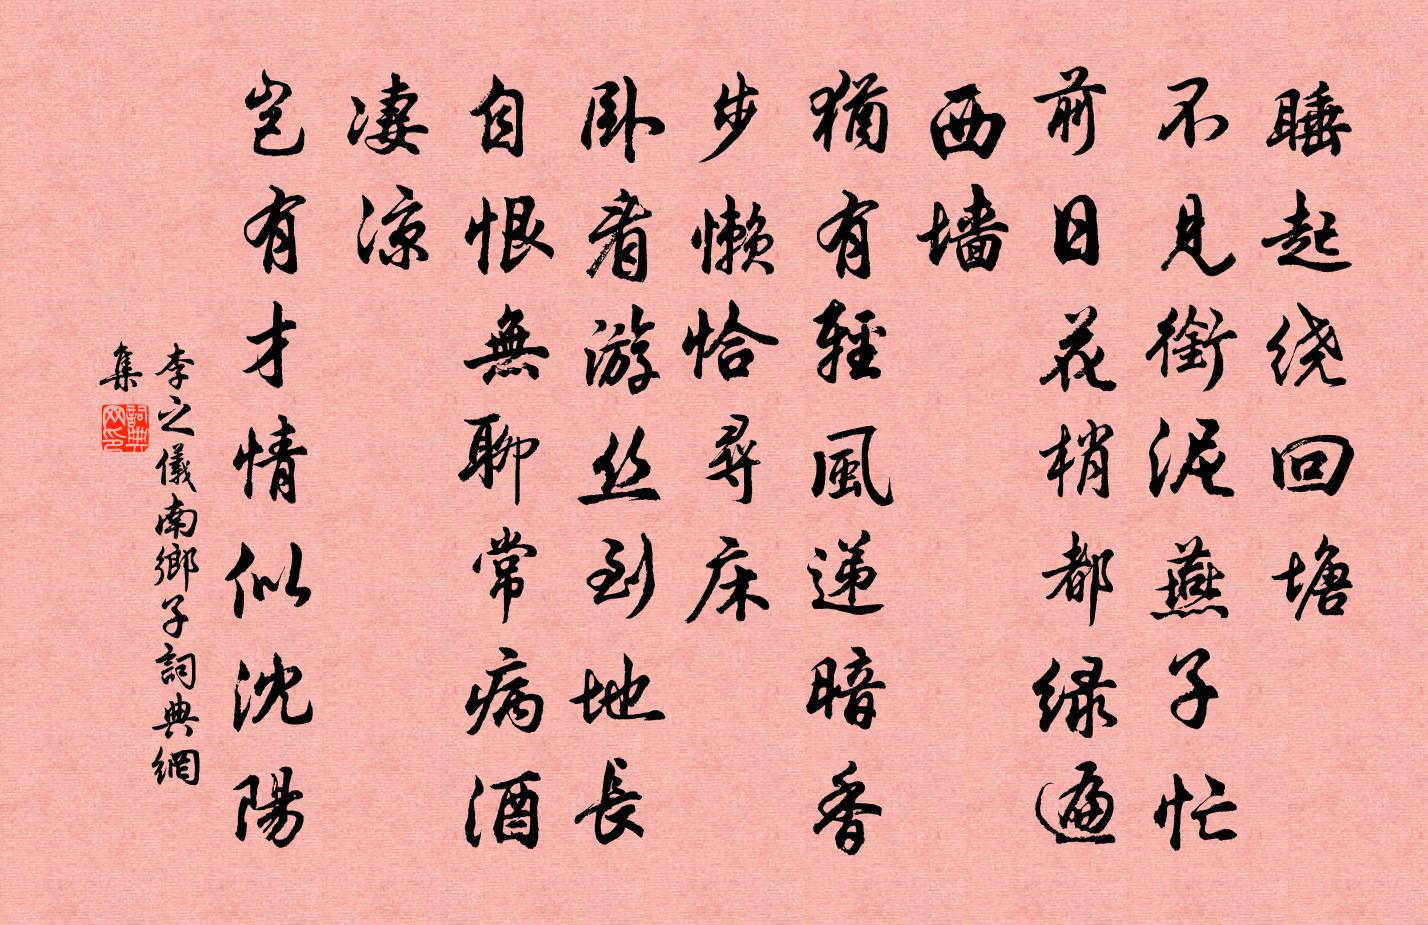 睡起绕回塘
不见銜泥燕子忙
前日花梢都绿遍
西墙
猶有輕風递暗香
步懒恰尋床
卧看游丝到地長
自恨無聊常病酒
凄凉
岂有才情似沈陽
李之儀南鄉子詞典網
集
詞典网印